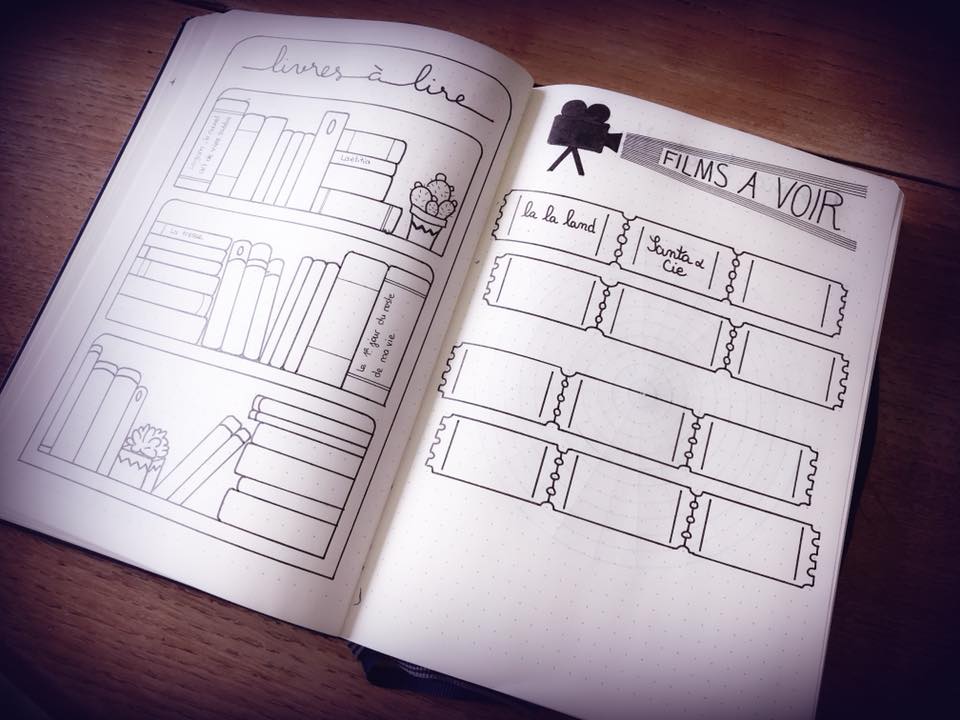 livres à lire
Laëtitia
La tresse
Le 1er jour du reste
de ma vie
FILMS A VOIR
la la land
Santa &
Cie